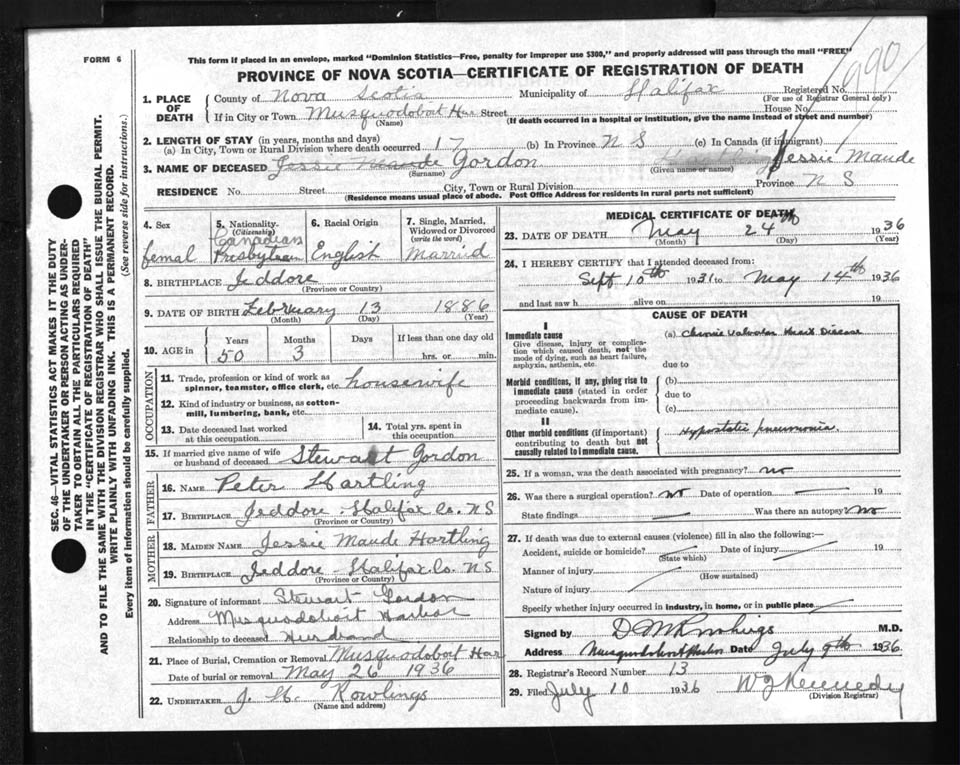 FORM 6
This form if placed in an envelope, marked "Dominion Statistics—Free, penalty for improper use $300," and properly addressed will pass through the mail "FREE"
PROVINCE OF NOVA SCOTIA—CERTIFICATE OF REGISTRATION OF DEATH
990
1. PLACE OF DEATH
County of Nova Scotia Municipality of Halifax Registered No.
(For use of Registrar General only)
If in City or Town Musquodoboit Har Street House No.
(Name) (If death occurred in a hospital or institution, give the name instead of street and number)
2. LENGTH OF STAY (in years, months and days)
(a) In City, Town or Rural Division where death occurred 17 (b) In Province N S (c) In Canada (if immigrant)
3. NAME OF DECEASED Jessie Maude Gordon Hartling Jessie Maude
(Surname) (Given name or names)
RESIDENCE No. Street City, Town or Rural Division Province N S
(Residence means usual place of abode. Post Office Address for residents in rural parts not sufficient)
SEC. 46—VITAL STATISTICS ACT MAKES IT THE DUTY
OF THE UNDERTAKER OR PERSON ACTING AS UNDER-
TAKER TO OBTAIN ALL THE PARTICULARS REQUIRED
IN THE "CERTIFICATE OF REGISTRATION OF DEATH"
AND TO FILE THE SAME WITH THE DIVISION REGISTRAR WHO SHALL ISSUE THE BURIAL PERMIT.
WRITE PLAINLY WITH UNFADING INK. THIS IS A PERMANENT RECORD.
Every item of information should be carefully supplied. (See reverse side for instructions.)
4. Sex
femal
5. Nationality. (Citizenship)
Canadian
Presbyterian
6. Racial Origin
English
7. Single, Married, Widowed or Divorced (write the word)
Marriid
8. BIRTHPLACE Jeddore
(Province or Country)
9. DATE OF BIRTH February 13 1886
(Month) (Day) (Year)
10. AGE in Years Months Days If less than one day old
50 3 hrs. or min.
OCCUPATION
11. Trade, profession or kind of work as spinner, teamster, office clerk, etc. housewife
12. Kind of industry or business, as cotton-mill, lumbering, bank, etc.
13. Date deceased last worked at this occupation
14. Total yrs. spent in this occupation
15. If married give name of wife or husband of deceased Stewart Gordon
FATHER
16. NAME Peter Hartling
17. BIRTHPLACE Jeddore Halifax Co. N S
(Province or Country)
MOTHER
18. MAIDEN NAME Jessie Maude Hartling
19. BIRTHPLACE Jeddore Halifax Co. N S
(Province or Country)
20. Signature of informant Stewart Gordon
Address Musquodoboit Harbor
Relationship to deceased Husband
21. Place of Burial, Cremation or Removal Musquodoboit Har
Date of burial or removal May 26 1936
22. UNDERTAKER J. H. Rowlings
(Name and address)
MEDICAL CERTIFICATE OF DEATH
23. DATE OF DEATH May 24th 1936
(Month) (Day) (Year)
24. I HEREBY CERTIFY that I attended deceased from:
Sept 10th 1931 to May 14th 1936
and last saw h alive on 19
CAUSE OF DEATH
I
Immediate cause
Give disease, injury or complication which caused death, not the mode of dying, such as heart failure, asphyxia, asthenia, etc.
(a) Chronic Valvular Heart Disease
due to
Morbid conditions, if any, giving rise to immediate cause (stated in order proceeding backwards from immediate cause).
(b)
due to
(c)
II
Other morbid conditions (if important) contributing to death but not causally related to immediate cause.
Hypostatic pneumonia
25. If a woman, was the death associated with pregnancy? no
26. Was there a surgical operation? no Date of operation 19
State findings Was there an autopsy? no
27. If death was due to external causes (violence) fill in also the following:—
Accident, suicide or homicide? Date of injury 19
(State which)
Manner of injury
(How sustained)
Nature of injury
Specify whether injury occurred in industry, in home, or in public place
Signed by D M Rowlings M.D.
Address Musquodoboit Harbor Date July 9th 1936
28. Registrar's Record Number 13
29. Filed July 10 1936 W J Kennedy
(Division Registrar)